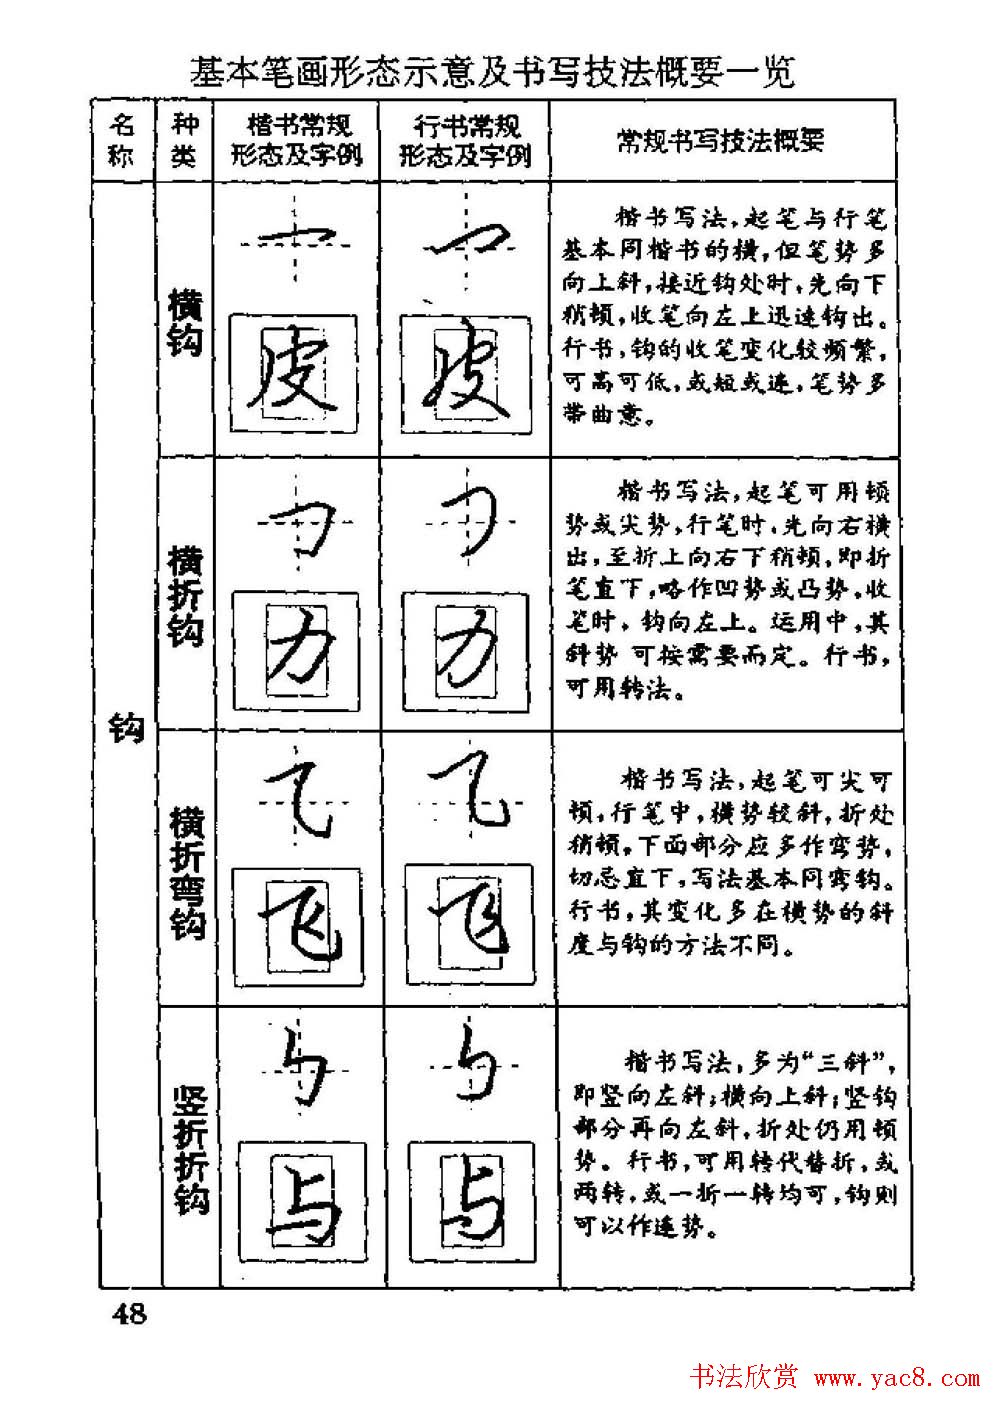 基本笔画形态示意及书写技法概要一览
名称
种类
楷书常规
形态及字例
行书常规
形态及字例
常规书写技法概要
钩
横钩
皮
皮
楷书写法,起笔与行笔
基本同楷书的横,但笔势多
向上斜,接近钩处时,先向下
稍顿,收笔向左上迅速钩出。
行书,钩的收笔变化较频繁,
可高可低,或短或连,笔势多
带曲意。
横折钩
力
力
楷书写法,起笔可用顿
势或尖势,行笔时,先向右横
出,至折上向右下稍顿,即折
笔直下,略作凹势或凸势,收
笔时,钩向左上。运用中,其
斜势 可按需要而定。行书,
可用转法。
横折弯钩
飞
飞
楷书写法,起笔可尖可
顿,行笔中,横势较斜,折处
稍顿,下面部分应多作弯势,
切忌直下,写法基本同弯钩。
行书,其变化多在横势的斜
度与钩的方法不同。
竖折折钩
与
与
楷书写法,多为“三斜”,
即竖向左斜;横向上斜;竖钩
部分再向左斜,折处仍用顿
势。行书,可用转代替折,或
两转,或一折一转均可,钩则
可以作连势。
48
书法欣赏 www.yac8.com